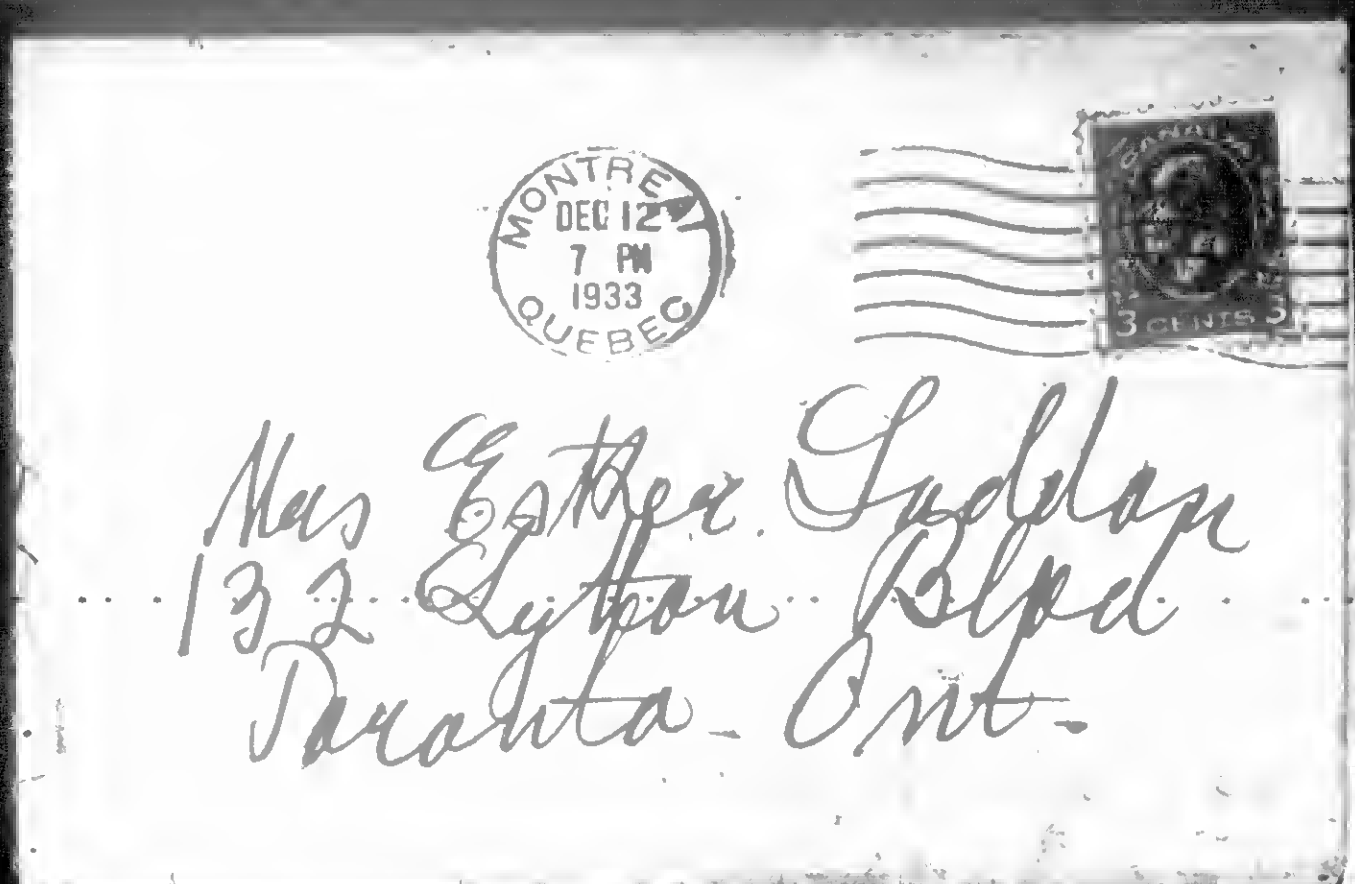 MONTREAL
DEC 12
7 PM
1933
QUEBEC
CANADA
3 CENTS 3
Mrs Esther
132 Lytton Blvd
Toronto - Ont -